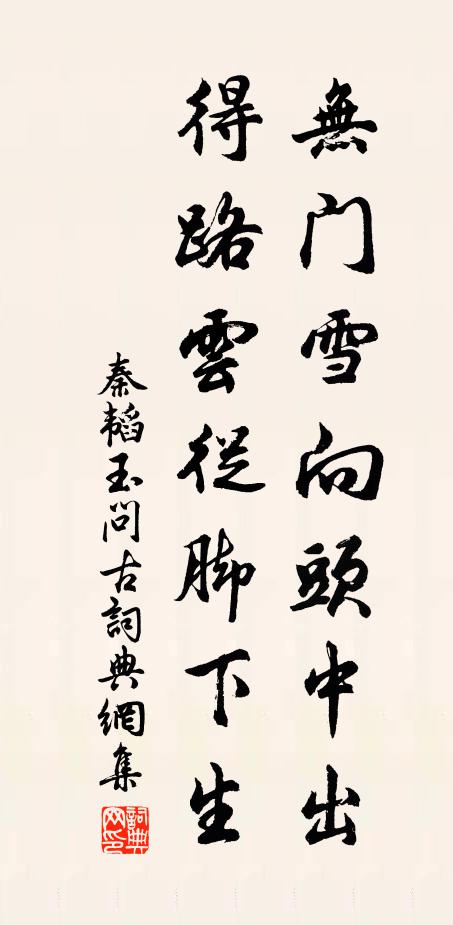 無门雪向頭中出
得路雲從脚下生
秦韜玉問古詞典網集
詞典网印